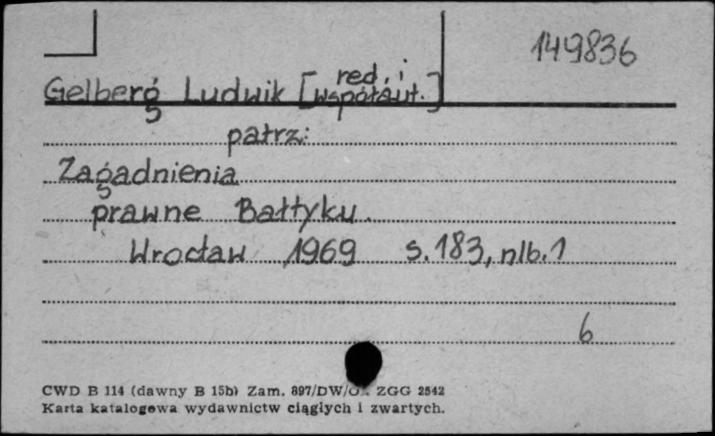 149836
Gelberg Ludwik [red. i współaut.]
patrz:
Zagadnienia
prawne Bałtyku.
Wrocław 1969 s.183, nlb.1
6
CWD B 114 (dawny B 15b) Zam. 897/DW/ ZGG 2542
Karta katalogowa wydawnictw ciągłych i zwartych.